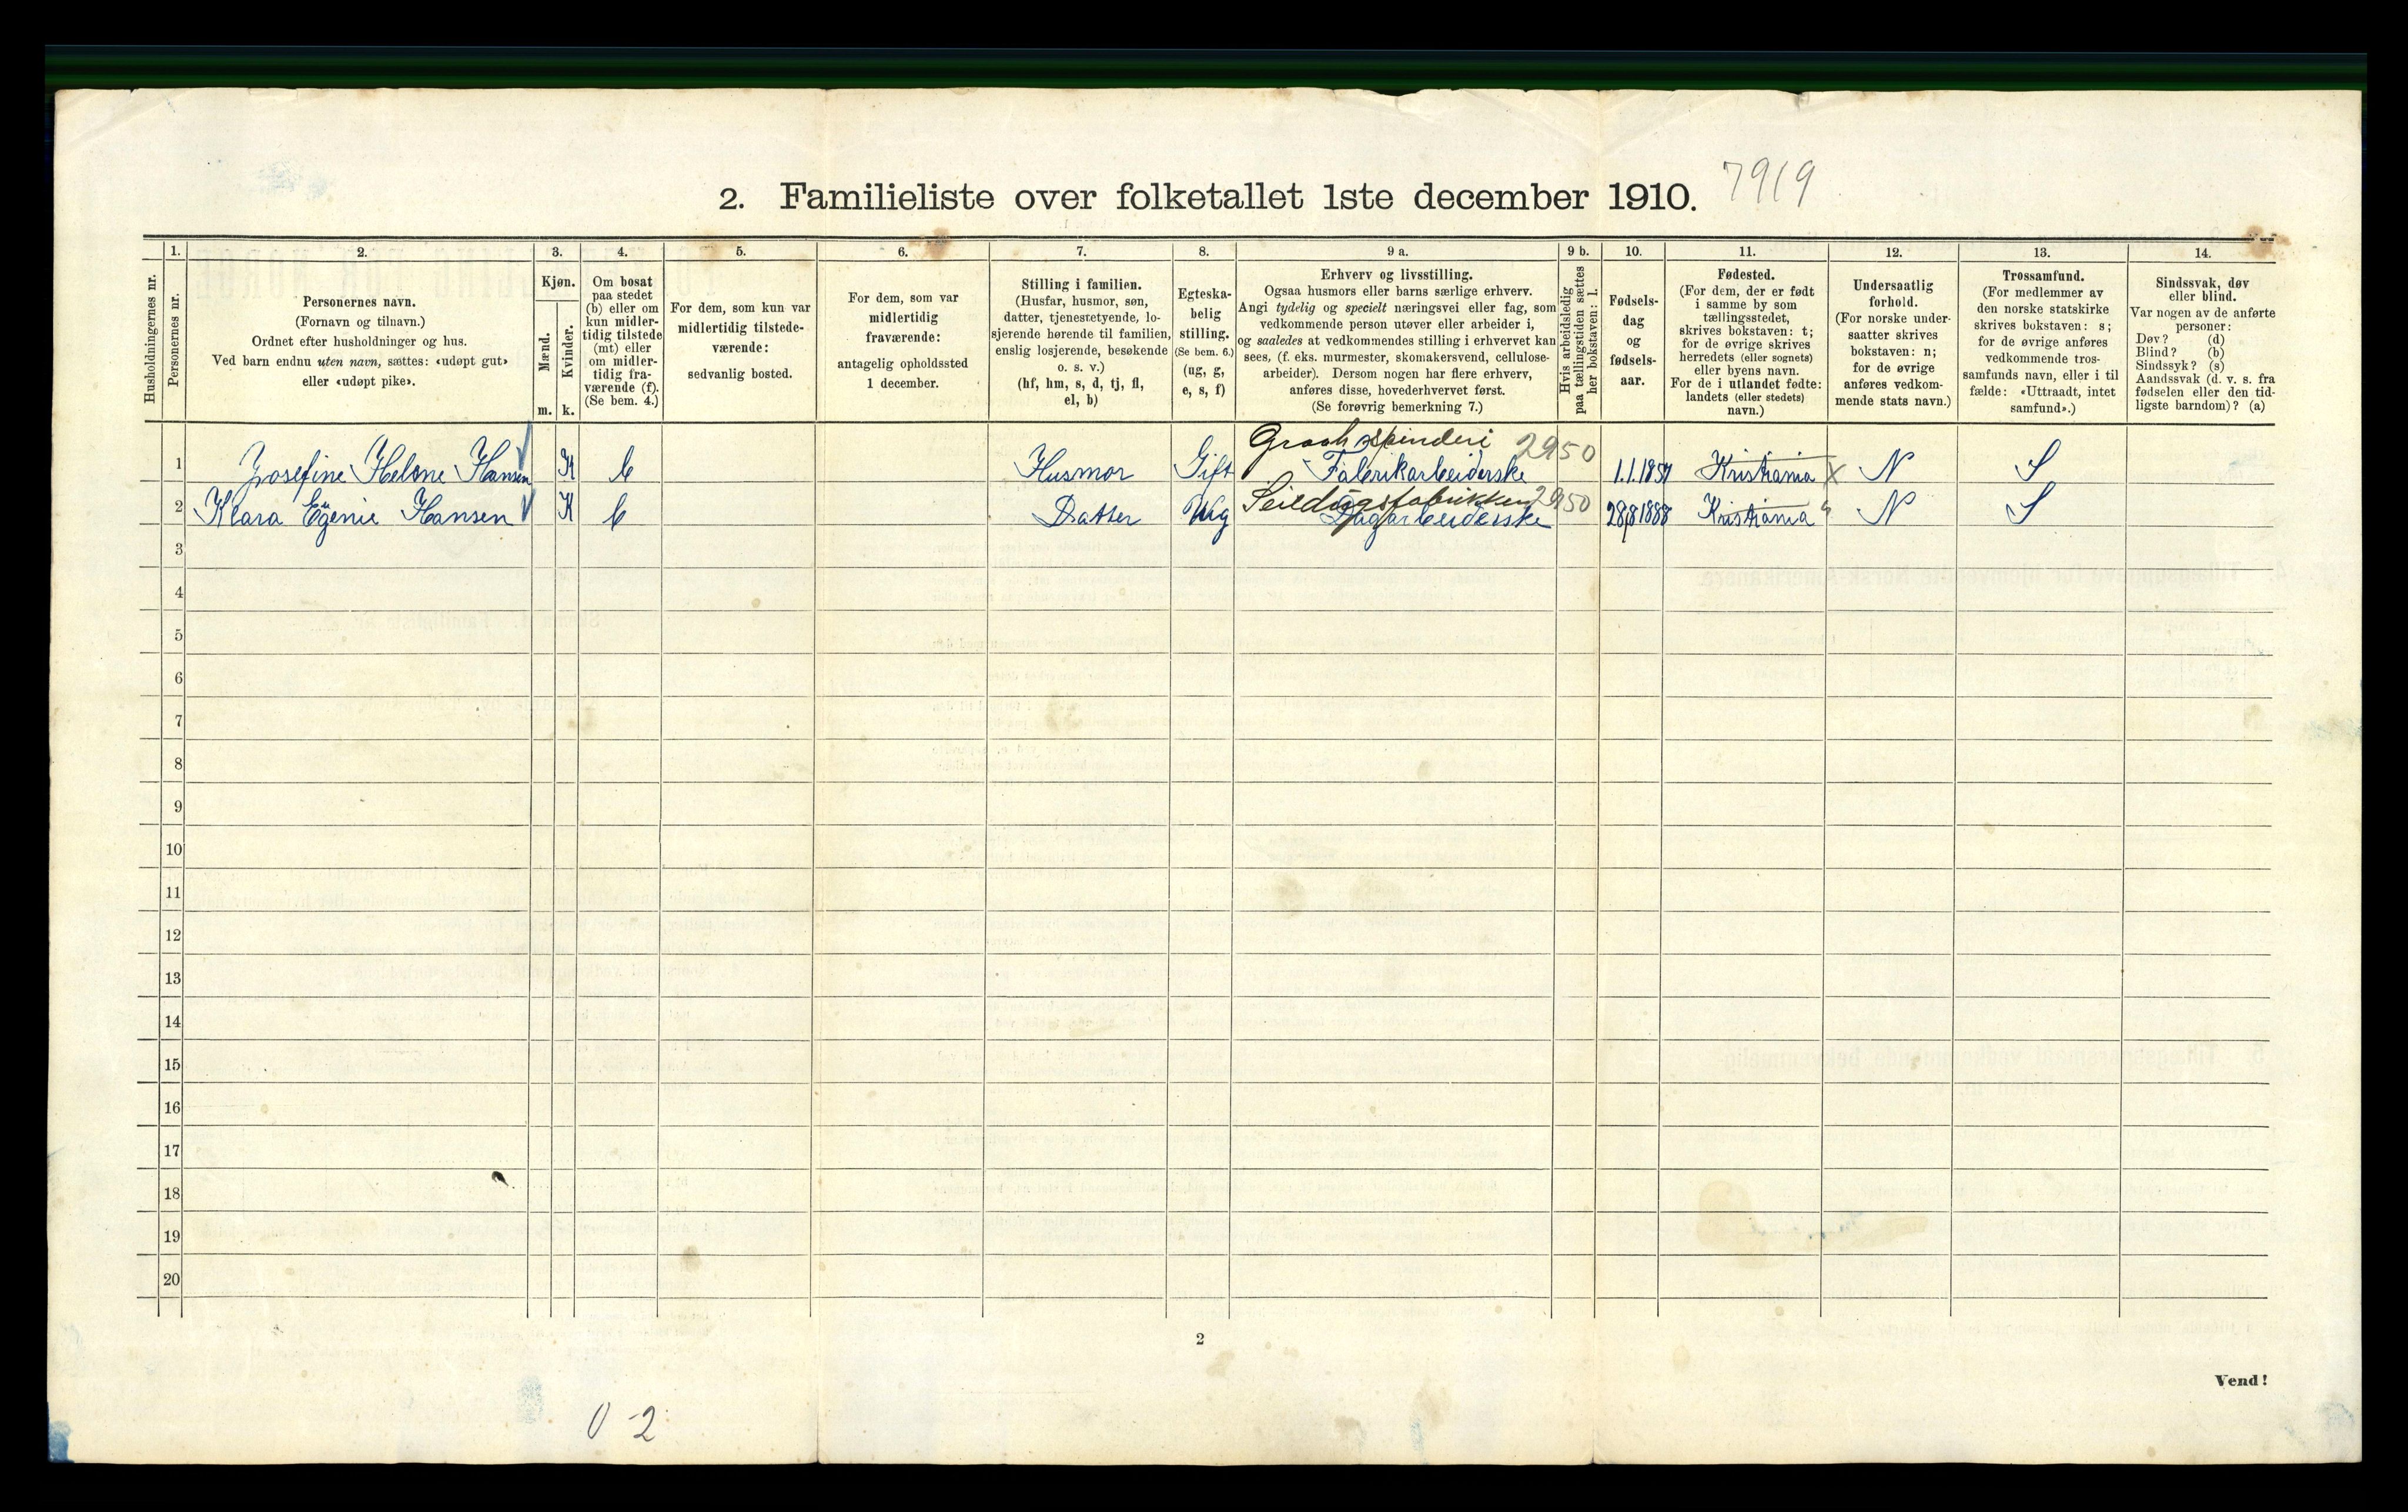 2. Familieliste over folketallet 1ste december 1910. 7919
1. 2. 3. 4. 5. 6. 7. 8. 9 a. 9 b. 10. 11. 12. 13. 14.
Husholdningernes nr.
Personernes nr.
Personernes navn.
(Fornavn og tilnavn.)
Ordnet efter husholdninger og hus.
Ved barn endnu uten navn, sættes: «udøpt gut»
eller «udøpt pike».
Kjøn.
Mænd.
m.
Kvinder.
k.
Om bosat
paa stedet
(b) eller om
kun midler-
tidig tilstede
(mt) eller
om midler-
tidig fra-
værende (f).
(Se bem. 4.)
For dem, som kun var
midlertidig tilstede-
værende:
sedvanlig bosted.
For dem, som var
midlertidig
fraværende:
antagelig opholdssted
1 december.
Stilling i familien.
(Husfar, husmor, søn,
datter, tjenestetyende, lo-
sjerende hørende til familien,
enslig losjerende, besøkende
o. s. v.)
(hf, hm, s, d, tj, fl,
el, b)
Egteska-
belig
stilling.
(Se bem. 6.)
(ug, g,
e, s, f)
Erhverv og livsstilling.
Ogsaa husmors eller barns særlige erhverv.
Angi tydelig og specielt næringsvei eller fag, som
vedkommende person utøver eller arbeider i,
og saaledes at vedkommendes stilling i erhvervet kan
sees, (f. eks. murmester, skomakersvend, cellulose-
arbeider). Dersom nogen har flere erhverv,
anføres disse, hovederhvervet først.
(Se forøvrig bemerkning 7.)
Hvis arbeidsledig
paa tællingstiden sættes
her bokstaven: l.
Fødsels-
dag
og
fødsels-
aar.
Fødested.
(For dem, der er født
i samme by som
tællingsstedet,
skrives bokstaven: t;
for de øvrige skrives
herredets (eller sognets)
eller byens navn.
For de i utlandet fødte:
landets (eller stedets)
navn.)
Undersaatlig
forhold.
(For norske under-
saatter skrives
bokstaven: n;
for de øvrige
anføres vedkom-
mende stats navn.)
Trossamfund.
(For medlemmer av
den norske statskirke
skrives bokstaven: s;
for de øvrige anføres
vedkommende tros-
samfunds navn, eller i til
fælde: «Uttraadt, intet
samfund».)
Sindssvak, døv
eller blind.
Var nogen av de anførte
personer:
Døv? (d)
Blind? (b)
Sindssyk? (s)
Aandssvak (d. v. s. fra
fødselen eller den tid-
ligste barndom)? (a)
spinderi 2950
1 Josefine Helene Hansen K b Husmor Gift Fabrikarbeiderske 1.1.1857 Kristiania N S
Seildugsfabrikken 2950
2 Klara Egenie Hansen K b Datter Ug Dagarbeiderske 28/8 1888 Kristiania N S
3
4
5
6
7
8
9
10
11
12
13
14
15
16
17
18
19
20
2
Vend!
0-2